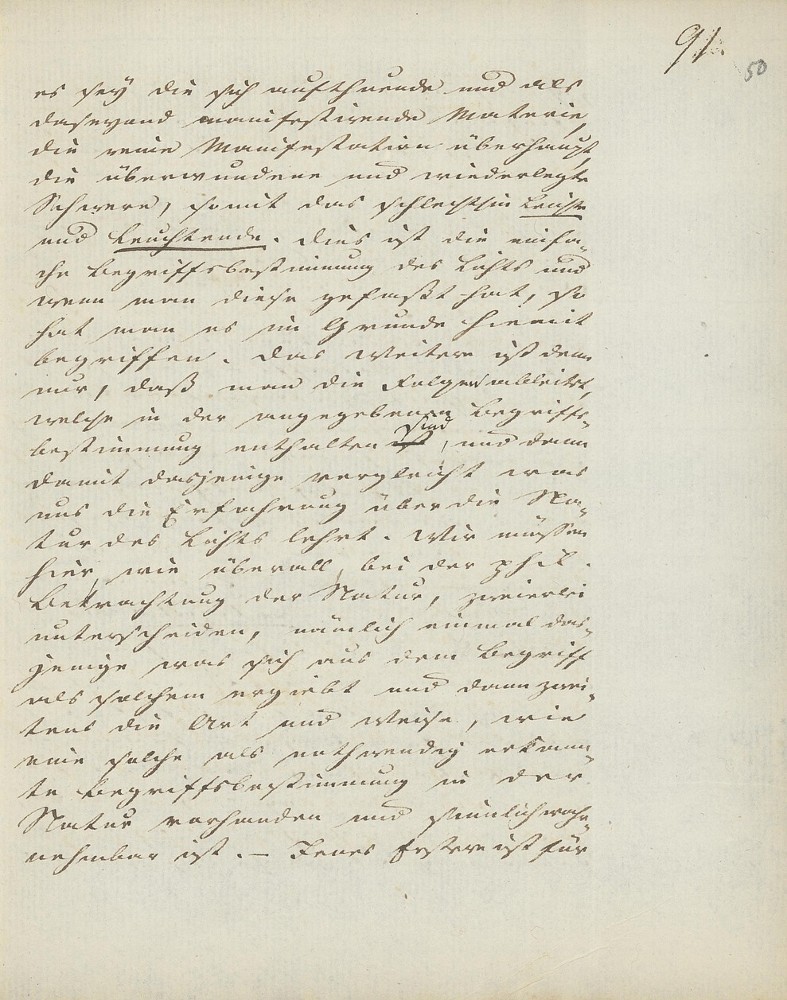 91.
50
es sey die sich aufthuende und als
daseyend manifestirende Materie,
die reine Manifestation überhaupt,
die überwundene und wiederlegte
Schwere, somit das schlechthin Leichte
und Leuchtende. Dies ist die einfa-
che Begriffsbestimmung des Lichts und
wenn man diese gefaßt hat, so
hat man es im Grunde hiemit
begriffen. Das Weitere ist dann
nur, daß man die Folgen ableitet,
welche in der angegebenen Begriffs-
bestimmung enthalten ist sind, und dann
damit dasjenige vergleicht was
uns die Erfahrung über die Na-
tur des Lichts lehrt. Wir müssen
hier, wie überall, bei der phil.
Betrachtung der Natur, zweierlei
unterscheiden, nämlich einmal das-
jenige was sich aus dem Begriff
als solchem ergiebt und dann zwei-
tens die Art und Weise, wie
eine solche als nothwendig erkann-
te Begriffsbestimmung in der
Natur vorhanden und sinnlich wahr-
nehmbar ist. – Jenes Erstere ist für